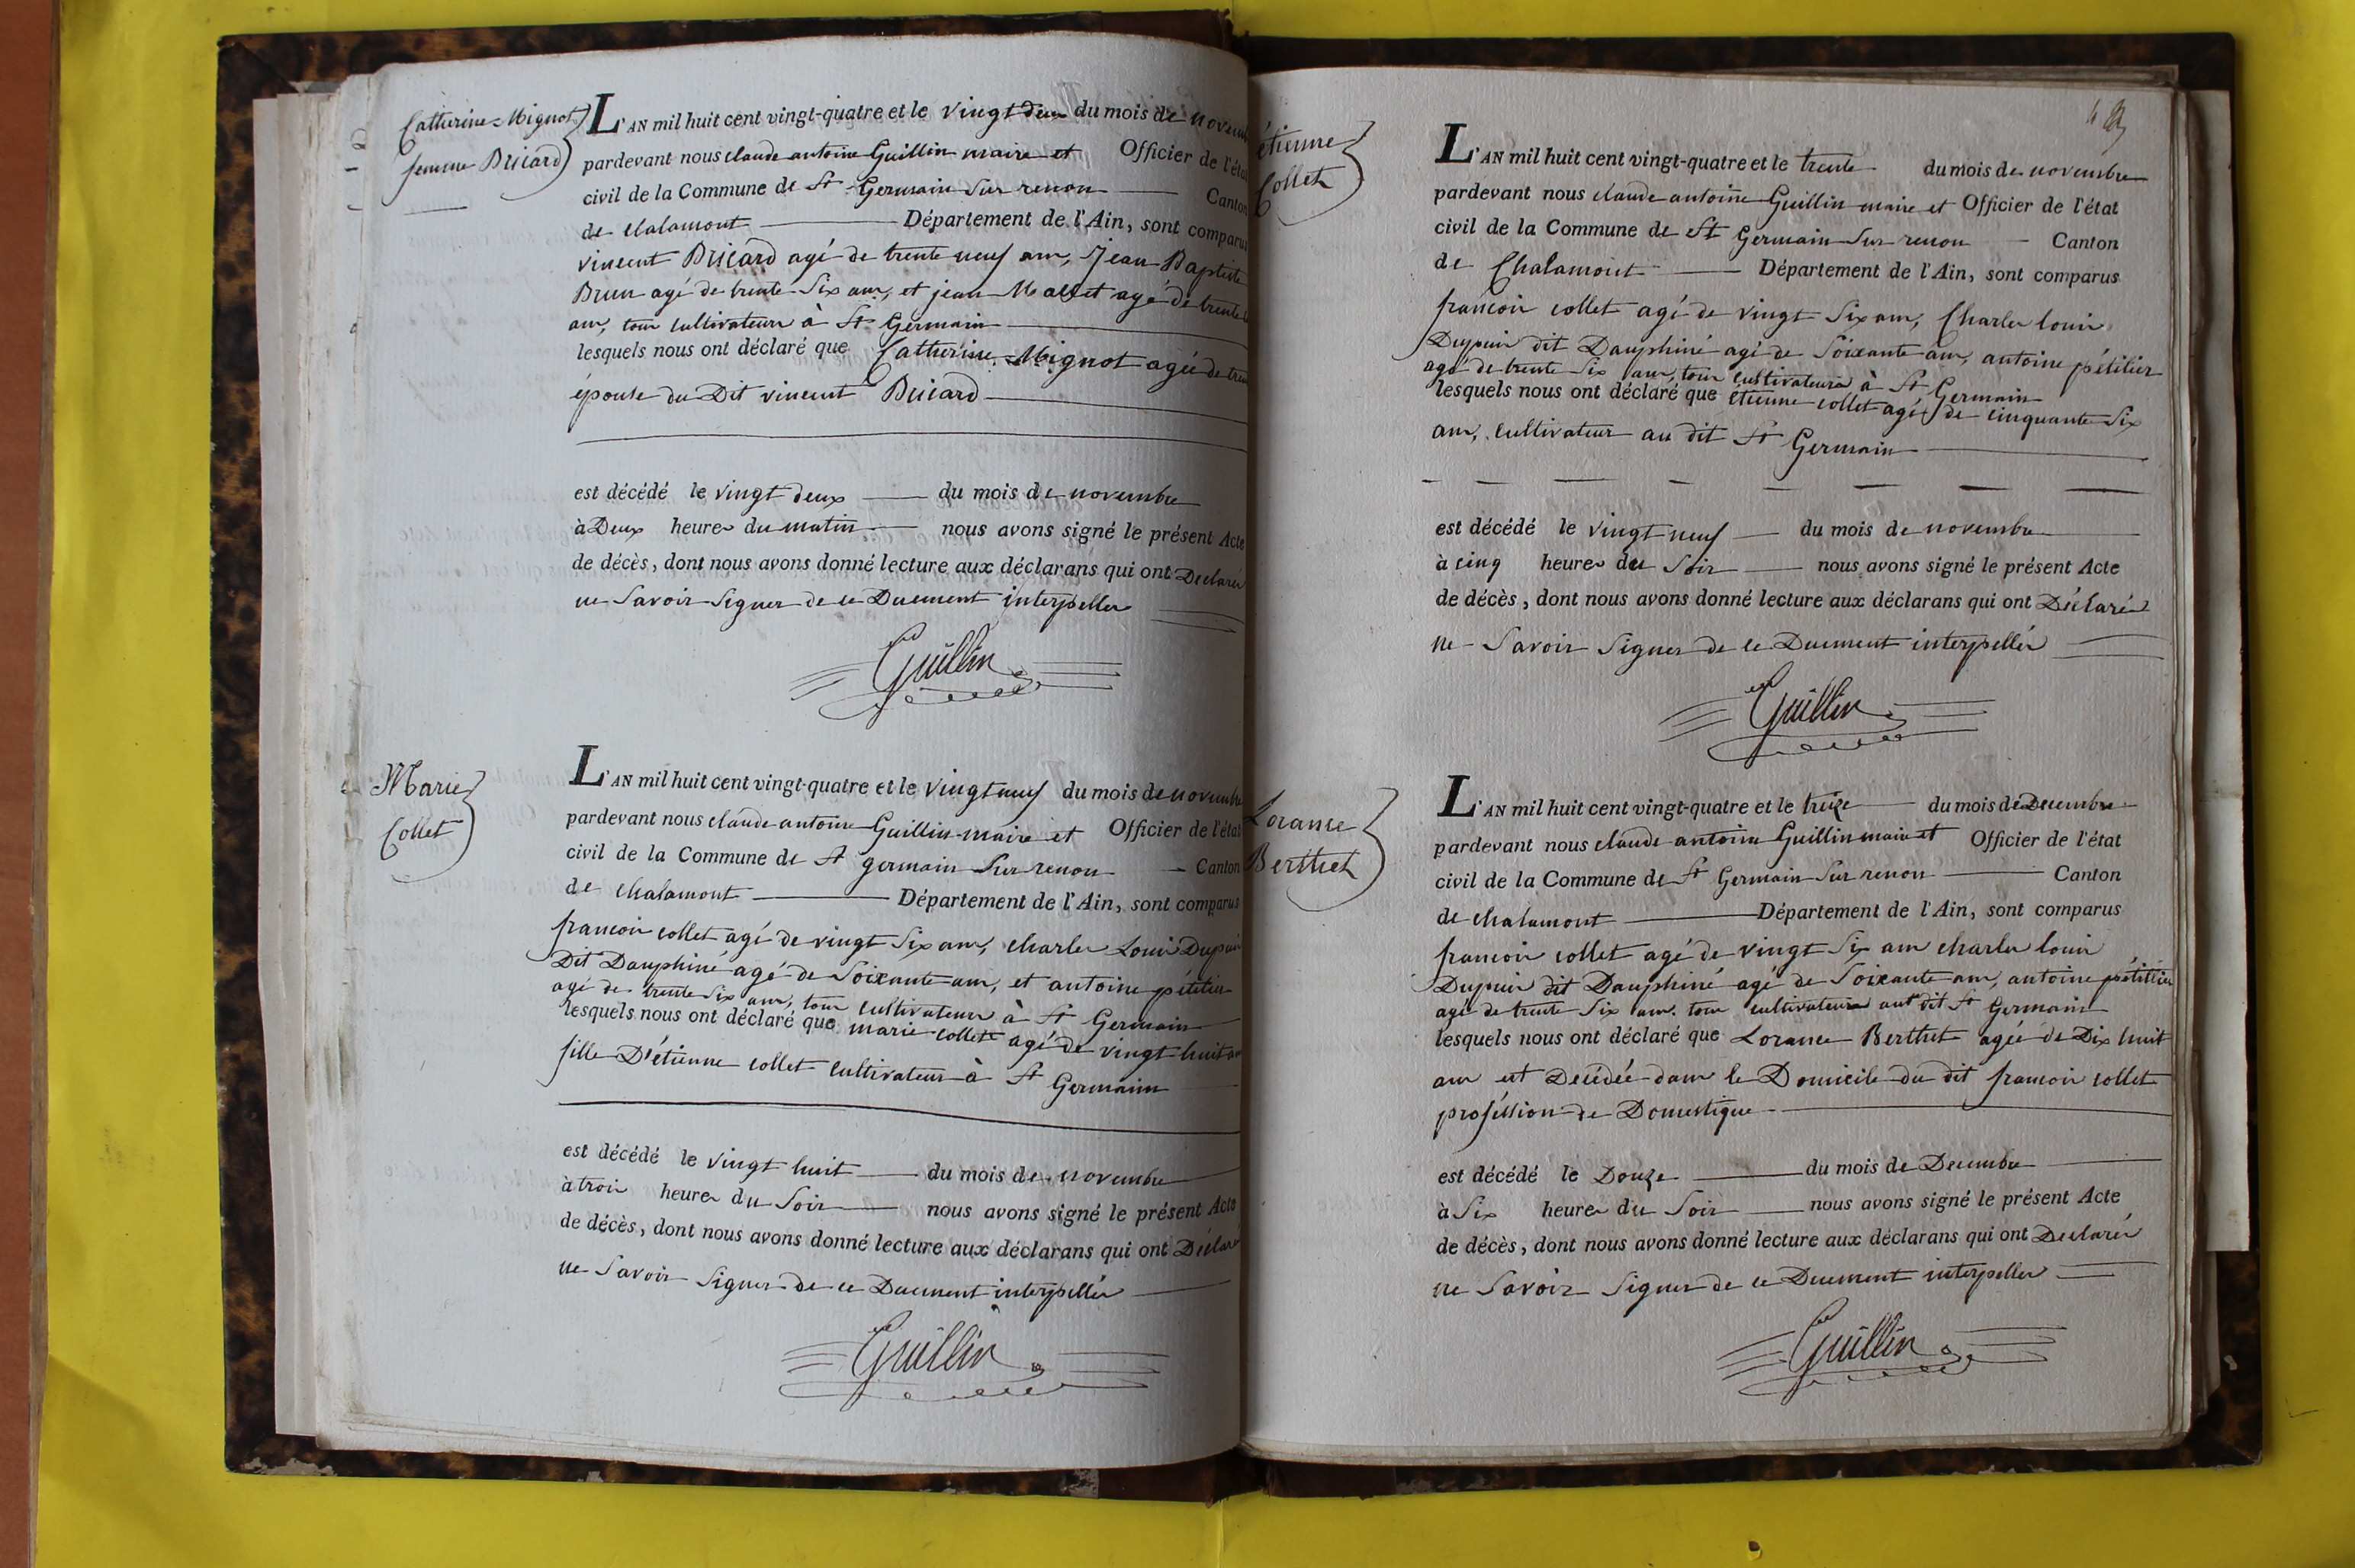 Catherine Mignot
femme Bricard
L'AN mil huit cent vingt-quatre et le vingt deux du mois de novem
pardevant nous claude antoine Guillin maire et Officier de l'état
civil de la Commune de St Germain Sur renon Canton
de chalamont Département de l'Ain, sont comparus
vincent Bricard agé de trente neuf ans, Jean Baptiste
Brun agé de trente Six ans, et jean Mallet agé de trente
ans, tous cultivateurs à St Germain
lesquels nous ont déclaré que Catherine Mignot agée de
épouse du Dit vincent Bricard
est décédé le vingt deux du mois de novembre
à Deux heures du matin nous avons signé le présent Acte
de décès, dont nous avons donné lecture aux déclarans qui ont Declarés
ne Savoir Signer de ce Duement interpellés
Guillin
Marie
Collet
L'AN mil huit cent vingt-quatre et le vingt neuf du mois de novembre
pardevant nous claude antoine Guillin maire et Officier de l'état
civil de la Commune de St germain Sur renon Canton
de chalamont Département de l'Ain, sont comparus
francois collet agé de vingt Six ans, charles Louis Dupuis
Dit Dauphiné agé de Soixante ans, et antoine pétitier
agé de trente Six ans, tous cultivateurs à St Germain
lesquels nous ont déclaré que marie collet agé de vingt huit
fille D'étienne collet cultivateur à St Germain
est décédé le vingt huit du mois de novembre
à trois heures du Soir nous avons signé le présent Acte
de décès, dont nous avons donné lecture aux déclarans qui ont Déclaré
ne Savoir Signer de ce Duement interpellés
Guillin
étienne
Collet
L'AN mil huit cent vingt-quatre et le trente du mois de novembre
pardevant nous claude antoine Guillin maire et Officier de l'état
civil de la Commune de St Germain Sur renon Canton
de Chalamont Département de l'Ain, sont comparus
francois collet agé de vingt Six ans, Charles louis
Dupuis dit Dauphiné agé de Soixante ans, antoine pétitier
agé de trente Six ans, tous cultivateurs à St Germain
lesquels nous ont déclaré que étienne collet agé de cinquante Six
ans, cultivateur au dit St Germain
est décédé le vingt neuf du mois de novembre
à cinq heures du Soir nous avons signé le présent Acte
de décès, dont nous avons donné lecture aux déclarans qui ont Déclarés
ne Savoir Signer de ce Duement interpellés
Guillin
Lorance
Berthet
L'AN mil huit cent vingt-quatre et le treize du mois de Decembre
pardevant nous claude antoine Guillin maire et Officier de l'état
civil de la Commune de St Germain Sur renon Canton
de chalamont Département de l'Ain, sont comparus
francois collet agé de vingt Six ans charles louis
Dupuis dit Dauphiné agé de Soixante ans, antoine pétitier
agé de trente Six ans. tous cultivateurs au dit St Germain
lesquels nous ont déclaré que Lorance Berthet agée de Dix huit
ans est Decédée dans le Domicile du dit francois collet
proféssion de Domestique
est décédé le Douze du mois de Decembre
à Six heures du Soir nous avons signé le présent Acte
de décès, dont nous avons donné lecture aux déclarans qui ont Declarés
ne Savoir Signer de ce Duement interpellés
Guillin